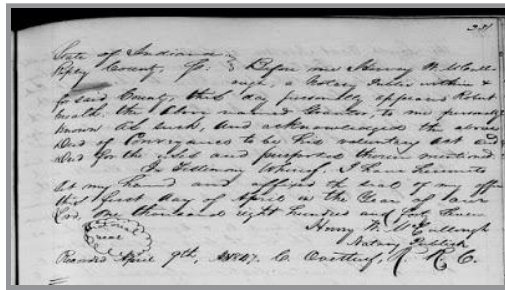 State of Indiana
Ripley County, Ss. } Before me Henry W. McCull-
ough, a Notary Public within &
for said County, this day personally appeared Robert
the above named Grantor, to me personally
known as such, and acknowledged the above
Deed of Conveyance to be his voluntary act and
deed for the uses and purposes therein mentioned.
In Testimony Whereof, I have hereunto
set my hand and affixed the seal of my office
this first day of April in the Year of our
Lord, one thousand eight hundred and forty seven
Henry W. McCullough
Notary Public
Recorded April 9th, 1847. C. Overturf, R. R. C.